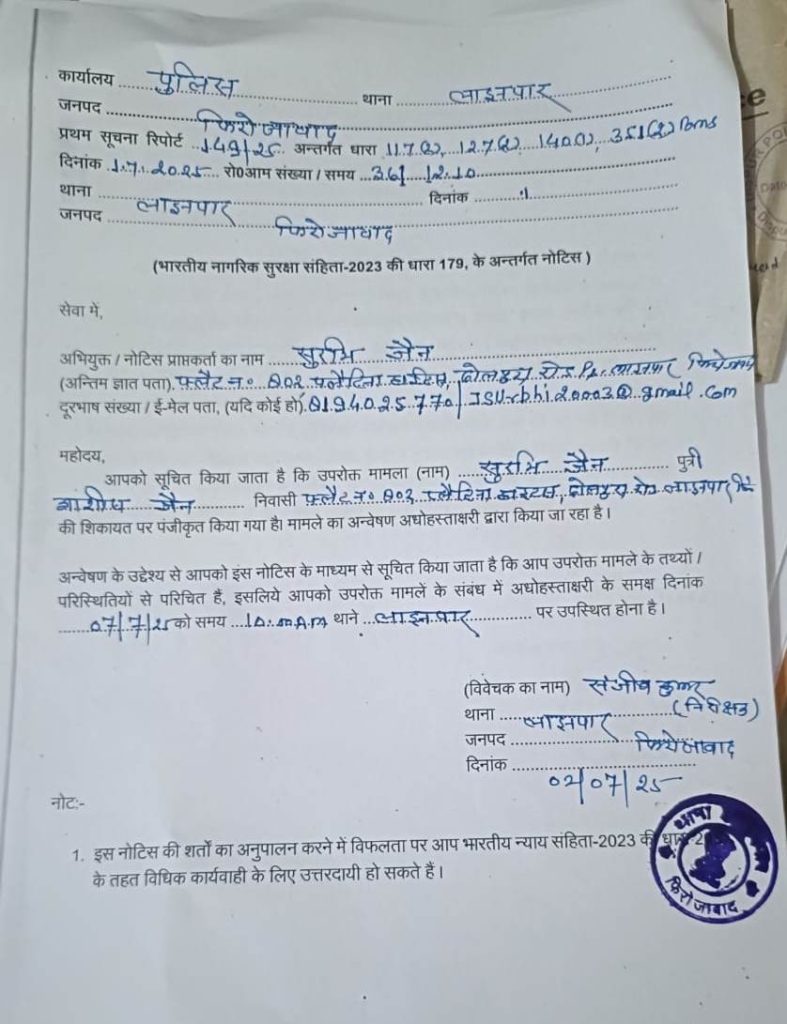 कार्यालय पुलिस थाना लाइनपार
जनपद फिरोजाबाद
प्रथम सूचना रिपोर्ट 149/25 अन्तर्गत धारा 117(2), 127(2), 140(1), 351(2) BNS
दिनांक 1.7.2025 रो0आम संख्या / समय 36/ 12.10
थाना लाइनपार दिनांक
जनपद फिरोजाबाद
(भारतीय नागरिक सुरक्षा संहिता-2023 की धारा 179, के अन्तर्गत नोटिस )
सेवा में,
अभियुक्त / नोटिस प्राप्तकर्ता का नाम सुरभि जैन
(अन्तिम ज्ञात पता). फ्लैट न० 802 प्लैटिना हाइट्स, रोड लाइनपार
दूरभाष संख्या / ई-मेल पता, (यदि कोई हो). 8194025770/ @gmail.com
महोदय,
आपको सूचित किया जाता है कि उपरोक्त मामला (नाम) सुरभि जैन पुत्री
जैन निवासी फ्लैट न० 802 प्लैटिना हाइट्स, रोड लाइनपार
की शिकायत पर पंजीकृत किया गया है। मामले का अन्वेषण अधोहस्ताक्षरी द्वारा किया जा रहा है।
अन्वेषण के उद्देश्य से आपको इस नोटिस के माध्यम से सूचित किया जाता है कि आप उपरोक्त मामले के तथ्यों /
परिस्थितियों से परिचित हैं, इसलिये आपको उपरोक्त मामलें के संबंध में अधोहस्ताक्षरी के समक्ष दिनांक
07/7/25 को समय 10:00 AM थाने लाइनपार पर उपस्थित होना है।
(विवेचक का नाम) संजीव कुमार
(निरीक्षक)
थाना लाइनपार
जनपद फिरोजाबाद
दिनांक
02/07/25
नोट:-
1. इस नोटिस की शर्तों का अनुपालन करने में विफलता पर आप भारतीय न्याय संहिता-2023 की धारा-2
के तहत विधिक कार्यवाही के लिए उत्तरदायी हो सकते हैं।
थाना
फिरोजाबाद